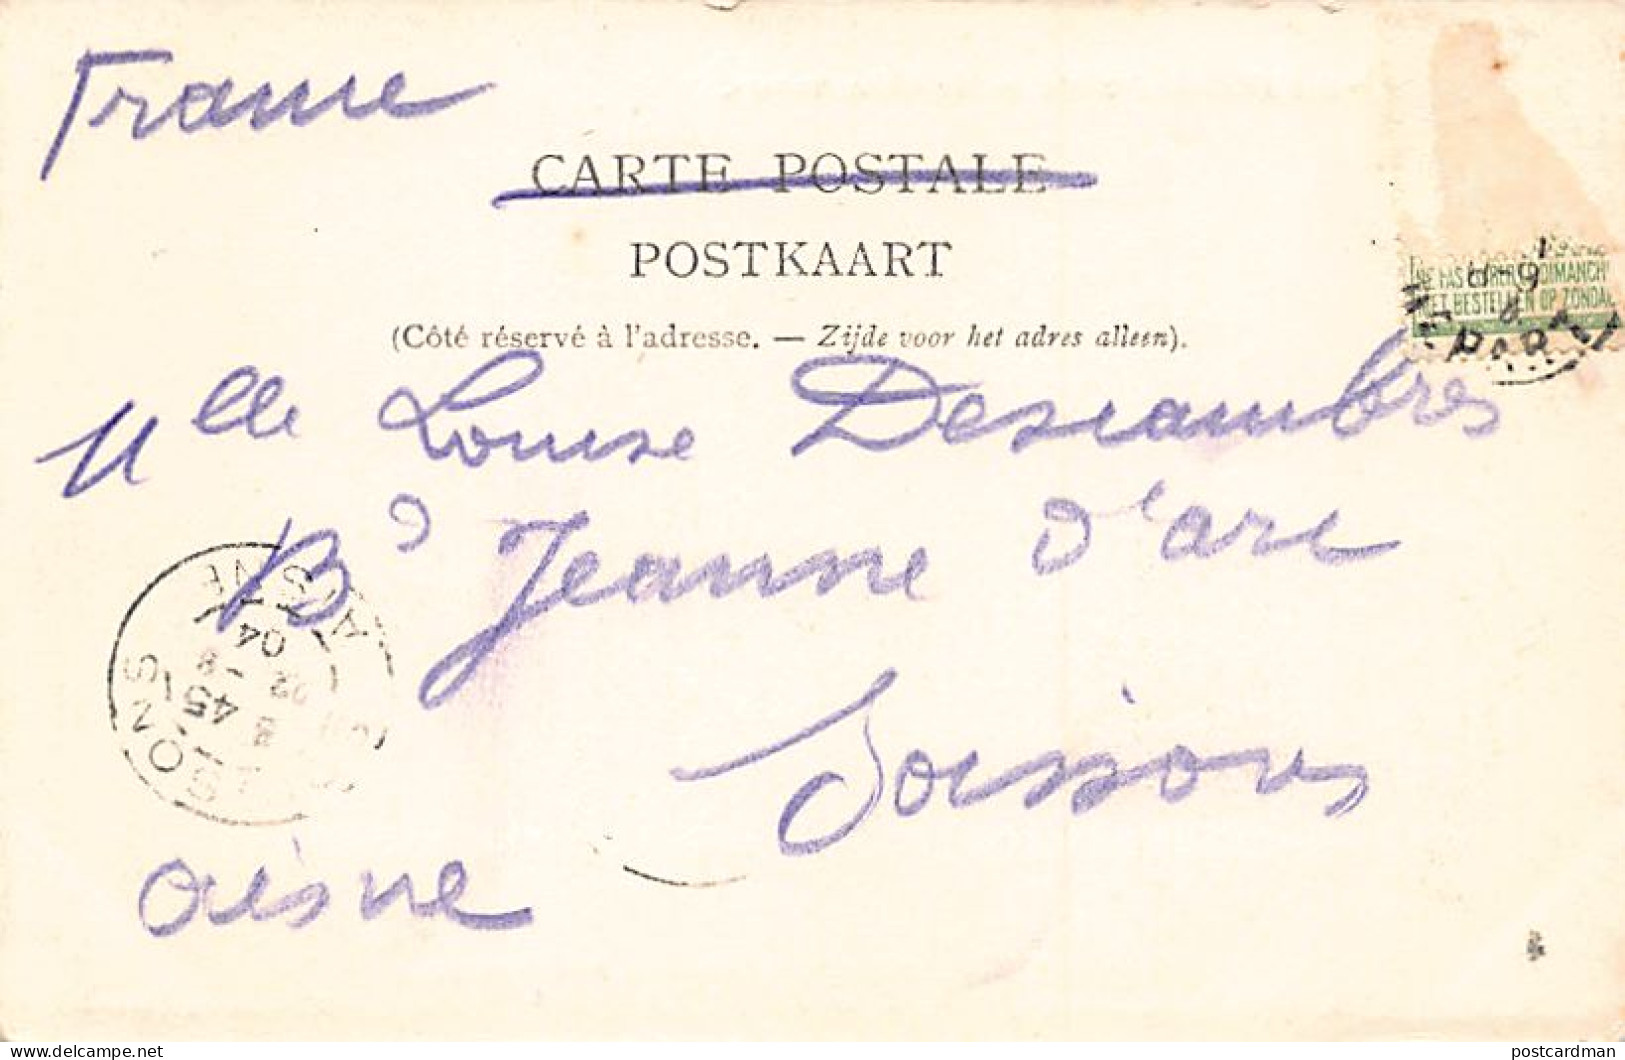 France
CARTE POSTALE
POSTKAART
(Côté réservé à l'adresse. — Zijde voor het adres alleen).
NE PAS LIVRER LE DIMANCHE
NIET BESTELLEN OP ZONDAG
Mlle Louise Descambres
Bd Jeanne d'arc
Soissons
aisne
AISNE
04
45
postcardman